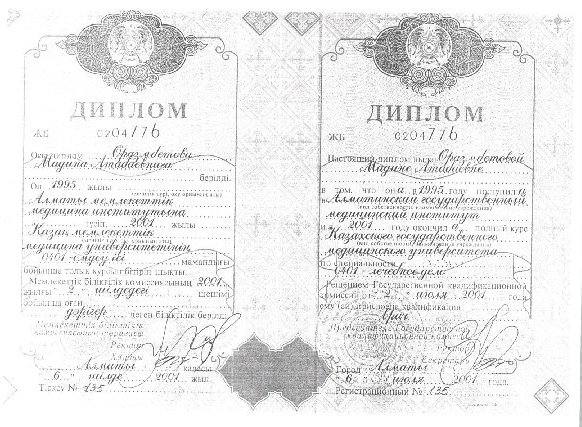 ДИПЛОМ
ЖБ 0204776
Осы диплом
Мадина Атабаевна
берілді.
Ол 1995 жылы
Алматы мемлекеттік
медицина институтына
түсіп, 2001 жылы
Қазақ мемлекеттік
медицина университетінің
0401 - емдеу ісі
мамандығы
бойынша толық курсын бітіріп шықты.
Мемлекеттік біліктілік комиссиясының 2001
жылғы 2 - шілдедегі шешімі
бойынша оған
дәрігер деген біліктілік берілді.
Ректор
Алматы қаласы
6 шілде 2001 жыл.
Тіркеу № 135
ДИПЛОМ
ЖБ 0204776
Настоящий диплом выдан
Мадине Атабаевне
в том, что она в 1995 году поступила
в Алматинский государственный
медицинский институт
и в 2001 году окончила полный курс
Казахского государственного
медицинского университета
по специальности
0401 - лечебное дело
Решением Государственной квалификационной
комиссии от 2 июля 2001 года
ему (ей) присвоена квалификация
Врач
Ректор
Секретарь
Город Алматы
6 июля 2001 года.
Регистрационный № 135